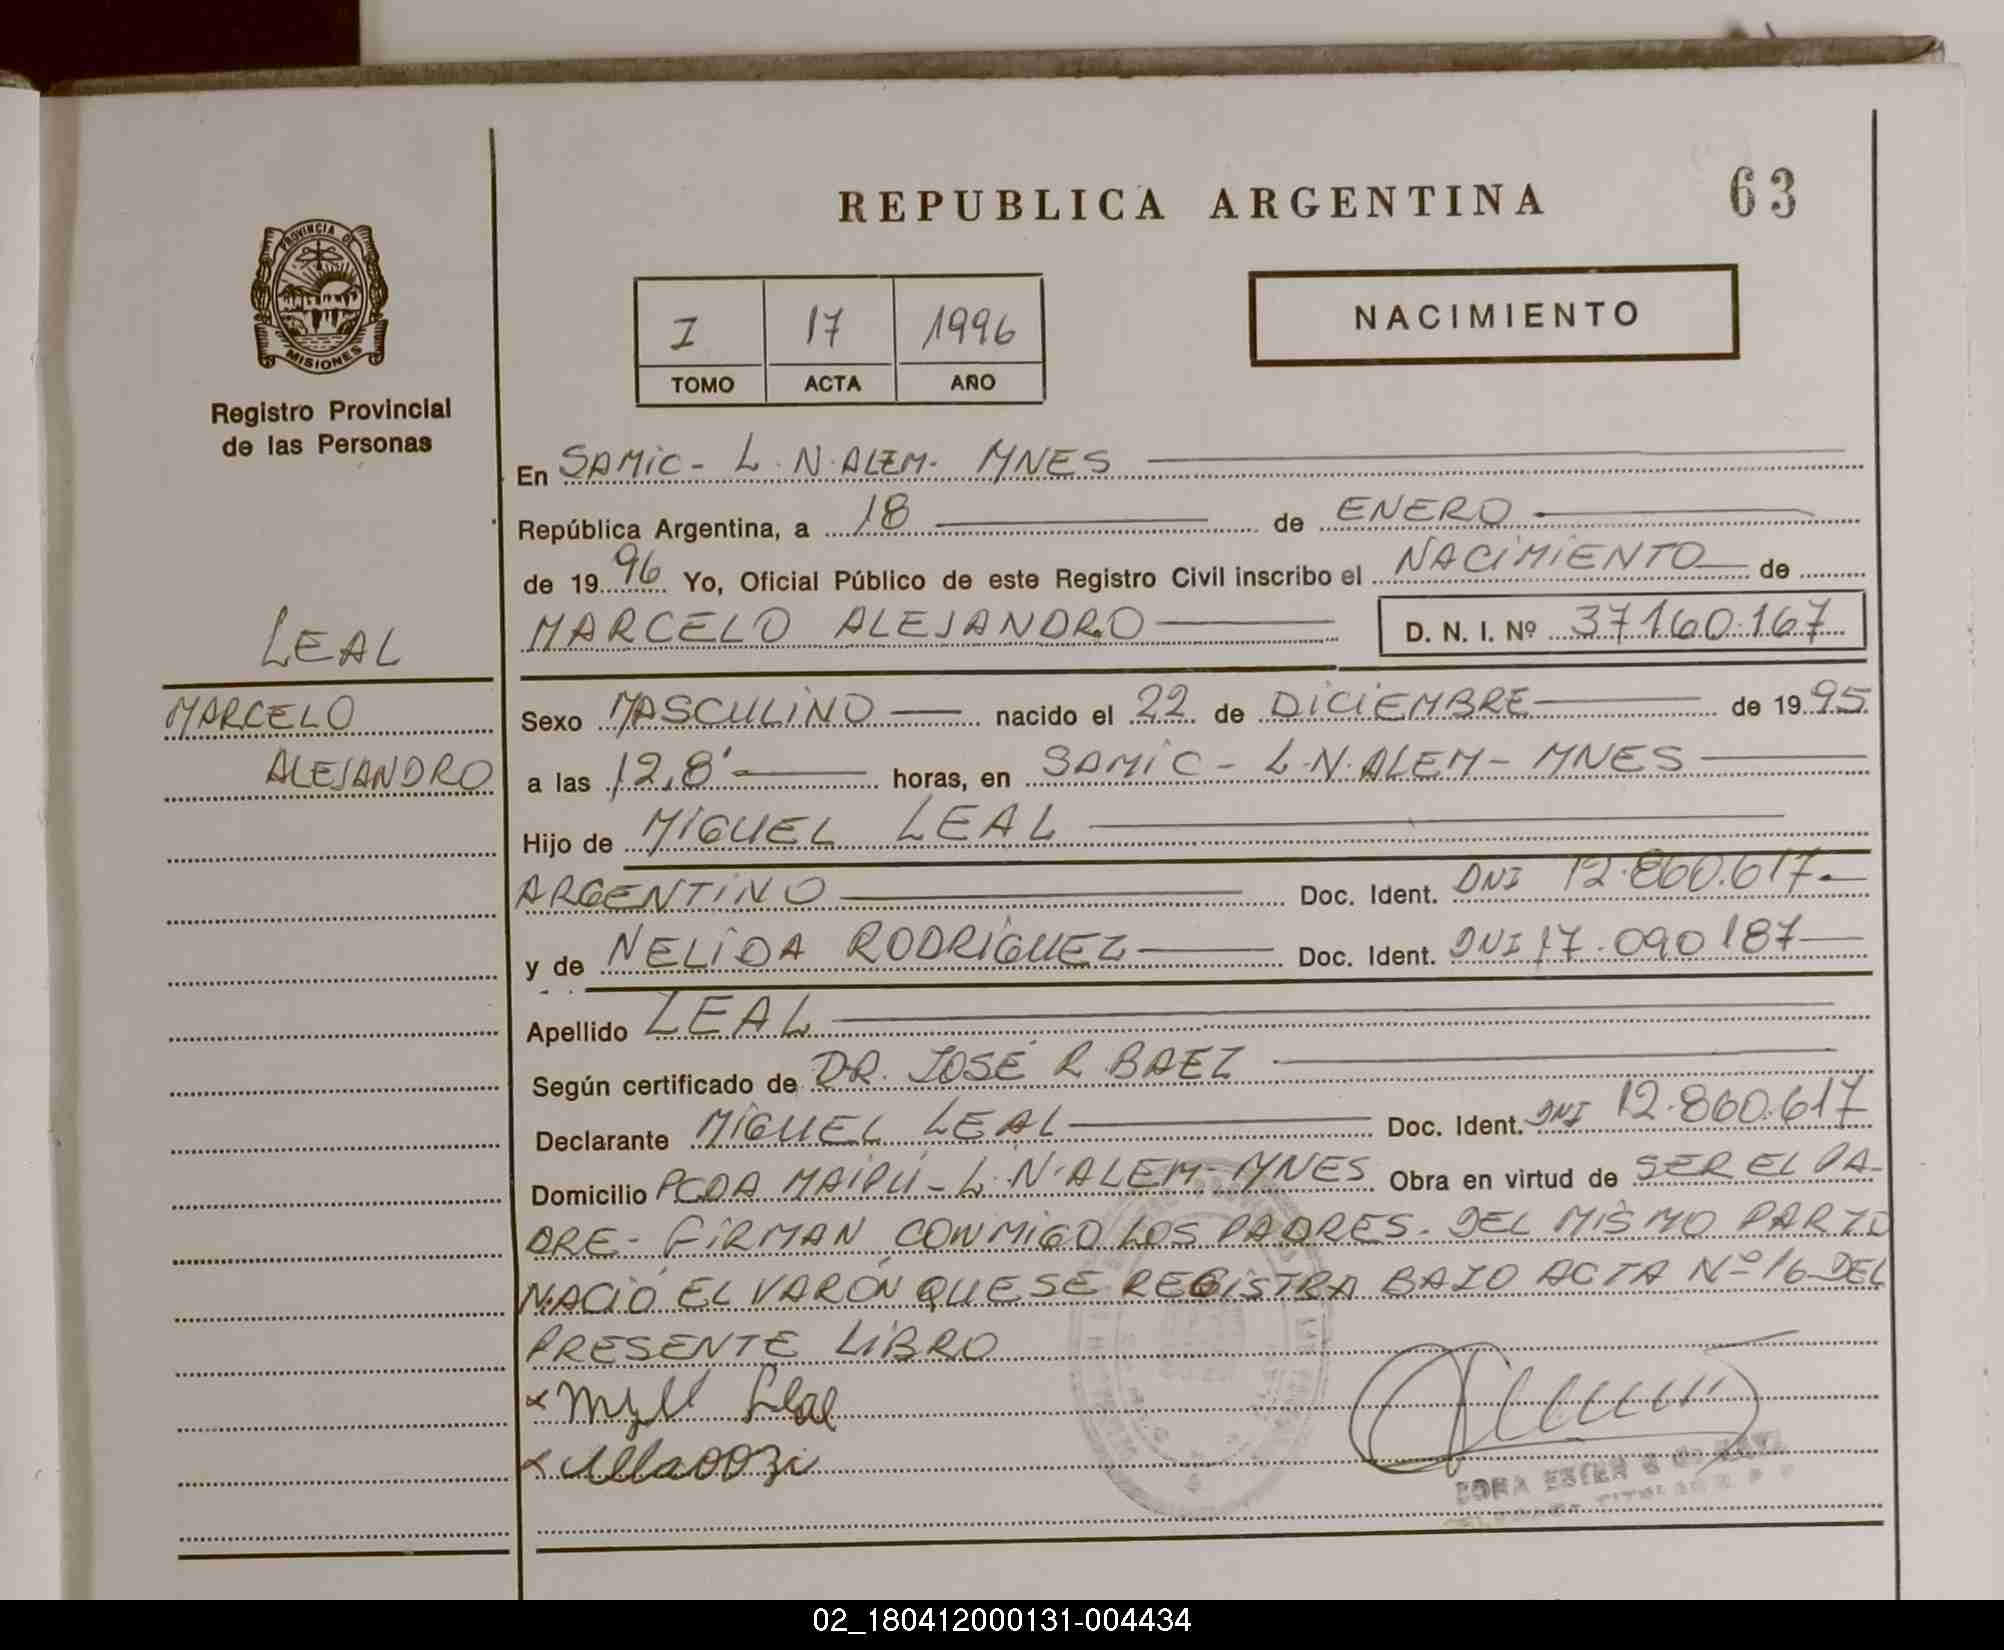 REPUBLICA ARGENTINA
63
PROVINCIA DE
MISIONES
Registro Provincial
de las Personas
I 17 1996
TOMO ACTA AÑO
NACIMIENTO
En SAMIC - L. N. ALEM - MNES
República Argentina, a 18 de ENERO
de 1996 Yo, Oficial Público de este Registro Civil inscribo el NACIMIENTO de
MARCELO ALEJANDRO D. N. I. Nº 37.160.167
LEAL
MARCELO
ALEJANDRO
Sexo MASCULINO nacido el 22 de DICIEMBRE de 1995
a las 12,8' horas, en SAMIC - L. N. ALEM - MNES
Hijo de MIGUEL LEAL
ARGENTINO Doc. Ident. DNI 12.860.617
y de NELIDA RODRIGUEZ Doc. Ident. DNI 17.090.187
Apellido LEAL
Según certificado de DR. JOSÉ R BAEZ
Declarante MIGUEL LEAL Doc. Ident. DNI 12.860.617
Domicilio PCDA MAIPÚ - L. N. ALEM - MNES Obra en virtud de SER EL PA-
DRE - FIRMAN CONMIGO LOS PADRES. DEL MISMO PARTO
NACIÓ EL VARÓN QUE SE REGISTRA BAJO ACTA Nº 16 DEL
PRESENTE LIBRO
Leal
02_180412000131-004434